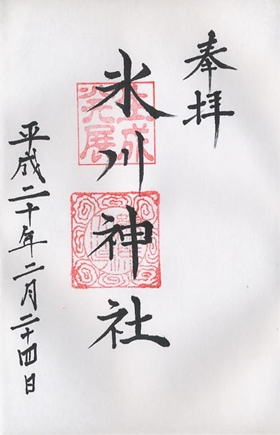 奉拝
氷川神社
平成二十年二月二十四日